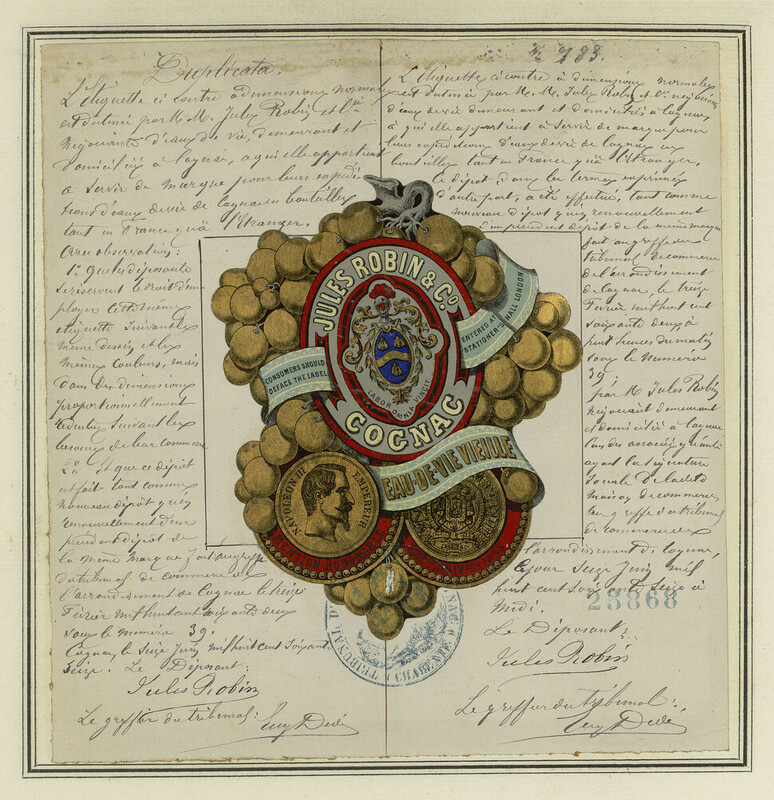 Duplicata.
L'Etiquette ci contre à dimensions normales
est destinée par M. M. Jules Robin et Cie
négociants d'eaux de vie, demeurant et
domiciliés à Cognac, à qui elle appartient
à servir de marque pour leurs expédi
tions d'eaux de vie de Cognac en bouteilles
tant en France qu'à l'Etranger.
Avec observation:
1o. Que les déposants
se réservent le droit d'em
ployer cette même
etiquette suivant le
même dessin et les
mêmes couleurs, mais
dans des dimensions
proportionnellement
réduites suivant les
besoins de leur commerce
2o. Et que ce dépôt
est fait tant comme
nouveau dépôt qu'en
renouvellement d'un
précédent dépôt de
la même marque fait au greffe
du tribunal de commerce de
l'arrondissement de Cognac le treize
Février mil huit cent soixante deux
sous le numéro 39.
Cognac, le Seize Juin mil huit cent Soixante
Seize. Le Déposant:
Jules Robin
Le greffier du tribunal:
No 983.
L'Etiquette ci contre à dimensions normales
est destinée par M. M. Jules Robin et Cie négociants
d'eaux de vie demeurant et domiciliés à Cognac,
à qui elle appartient à servir de marque pour
leurs expéditions d'eaux de vie de Cognac en
bouteilles tant en France qu'à l'Etranger.
Ce dépôt, dans les termes exprimés
d'autre part, a été effectué, tant comme
nouveau dépôt qu'en renouvellement
d'un précédent dépôt de la même marque
fait au greffe du
tribunal de commerce
de l'arrondissement
de Cognac, le treize
Février mil huit cent
soixante deux à
huit heures du matin
sous le numéro
39.
par M. Jules Robin
négociant demeurant
et domicilié à Cognac
l'un des associés
ayant la signature
sociale de ladite
maison de commerce
au greffe du tribunal
de commerce de
l'arrondissement de Cognac,
ce jour Seize Juin mil
huit cent Soixante Seize à
Midi.
23868
Le Déposant:
Jules Robin
Le greffier du tribunal:
JULES ROBIN & Co.
COGNAC
LABOR OMNIA VINCIT
CONSUMERS SHOULD
DEFACE THE LABEL
ENTERED AT
STATIONER'S HALL LONDON
EAU-DE-VIE VIEILLE
NAPOLEON III EMPEREUR